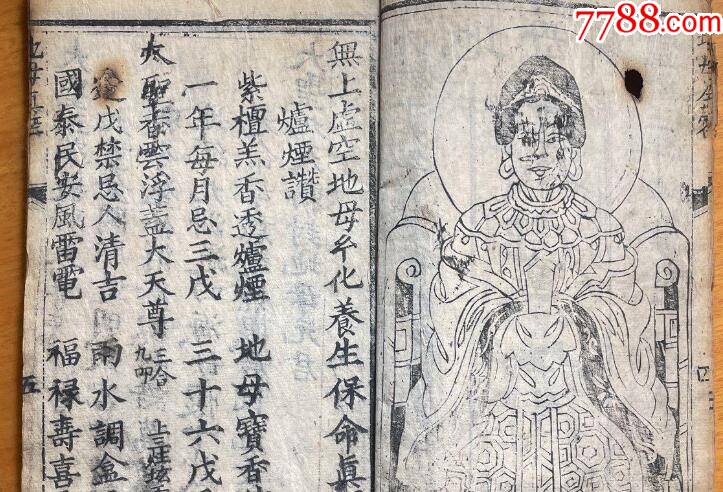 7788.com
無上虛空地母玄化養生保命真
爐煙讚
紫檀羔香透爐煙 地母寶香
一年每月忌三戊 三十六戊
大聖香雲浮蓋大天尊 三合九叩 上三炷
戊禁忌人清吉 雨水調
國泰民安風雷電 福祿壽喜
地母真經 五
四